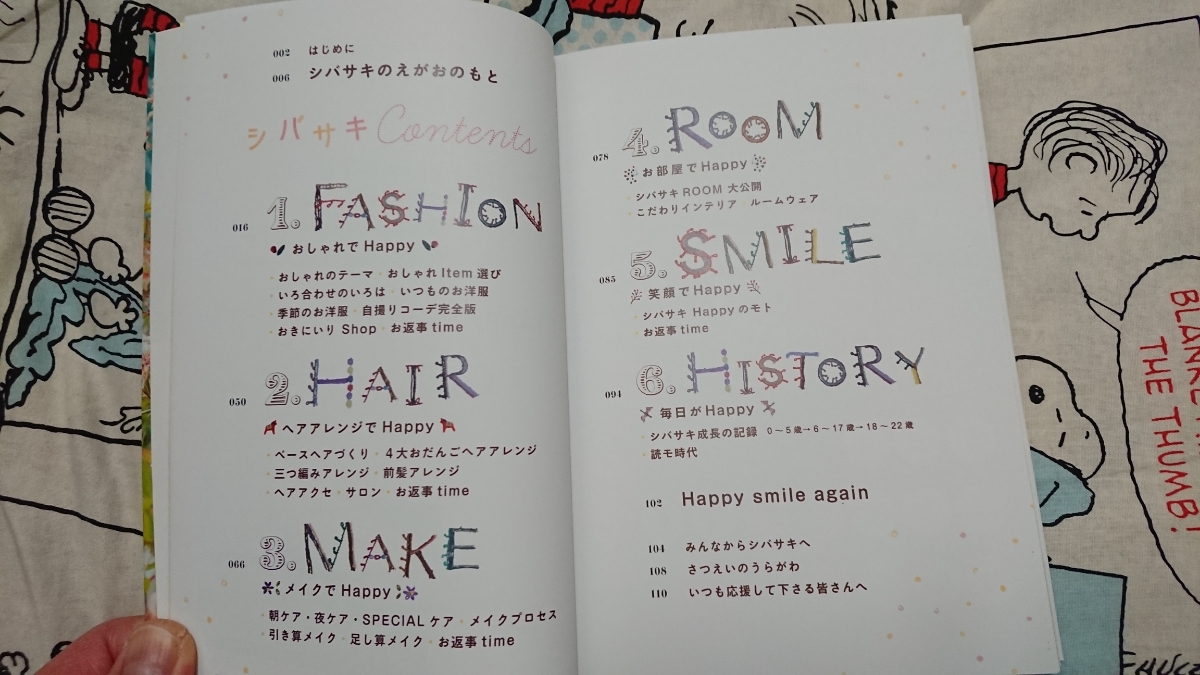 002 はじめに
006 シバサキのえがおのもと
シバサキ Contents
016 1. FASHION
おしゃれでHappy
・おしゃれのテーマ・おしゃれItem選び
・いろ合わせのいろは・いつものお洋服
・季節のお洋服・自撮りコーデ完全版
・おきにいりShop・お返事time
050 2. HAIR
ヘアアレンジでHappy
・ベースヘアづくり・4大おだんごヘアアレンジ
・三つ編みアレンジ・前髪アレンジ
・ヘアアクセ・サロン・お返事time
066 3. MAKE
メイクでHappy
・朝ケア・夜ケア・SPECIALケア・メイクプロセス
・引き算メイク・足し算メイク・お返事time
078 4. ROOM
お部屋でHappy
・シバサキROOM大公開
・こだわりインテリア ルームウェア
085 5. SMILE
笑顔でHappy
・シバサキ Happyのモト
・お返事time
094 6. HISTORY
毎日がHappy
・シバサキ成長の記録 0〜5歳→6〜17歳→18〜22歳
・読モ時代
102 Happy smile again
104 みんなからシバサキへ
108 さつえいのうらがわ
110 いつも応援して下さる皆さんへ
THE THUMB!